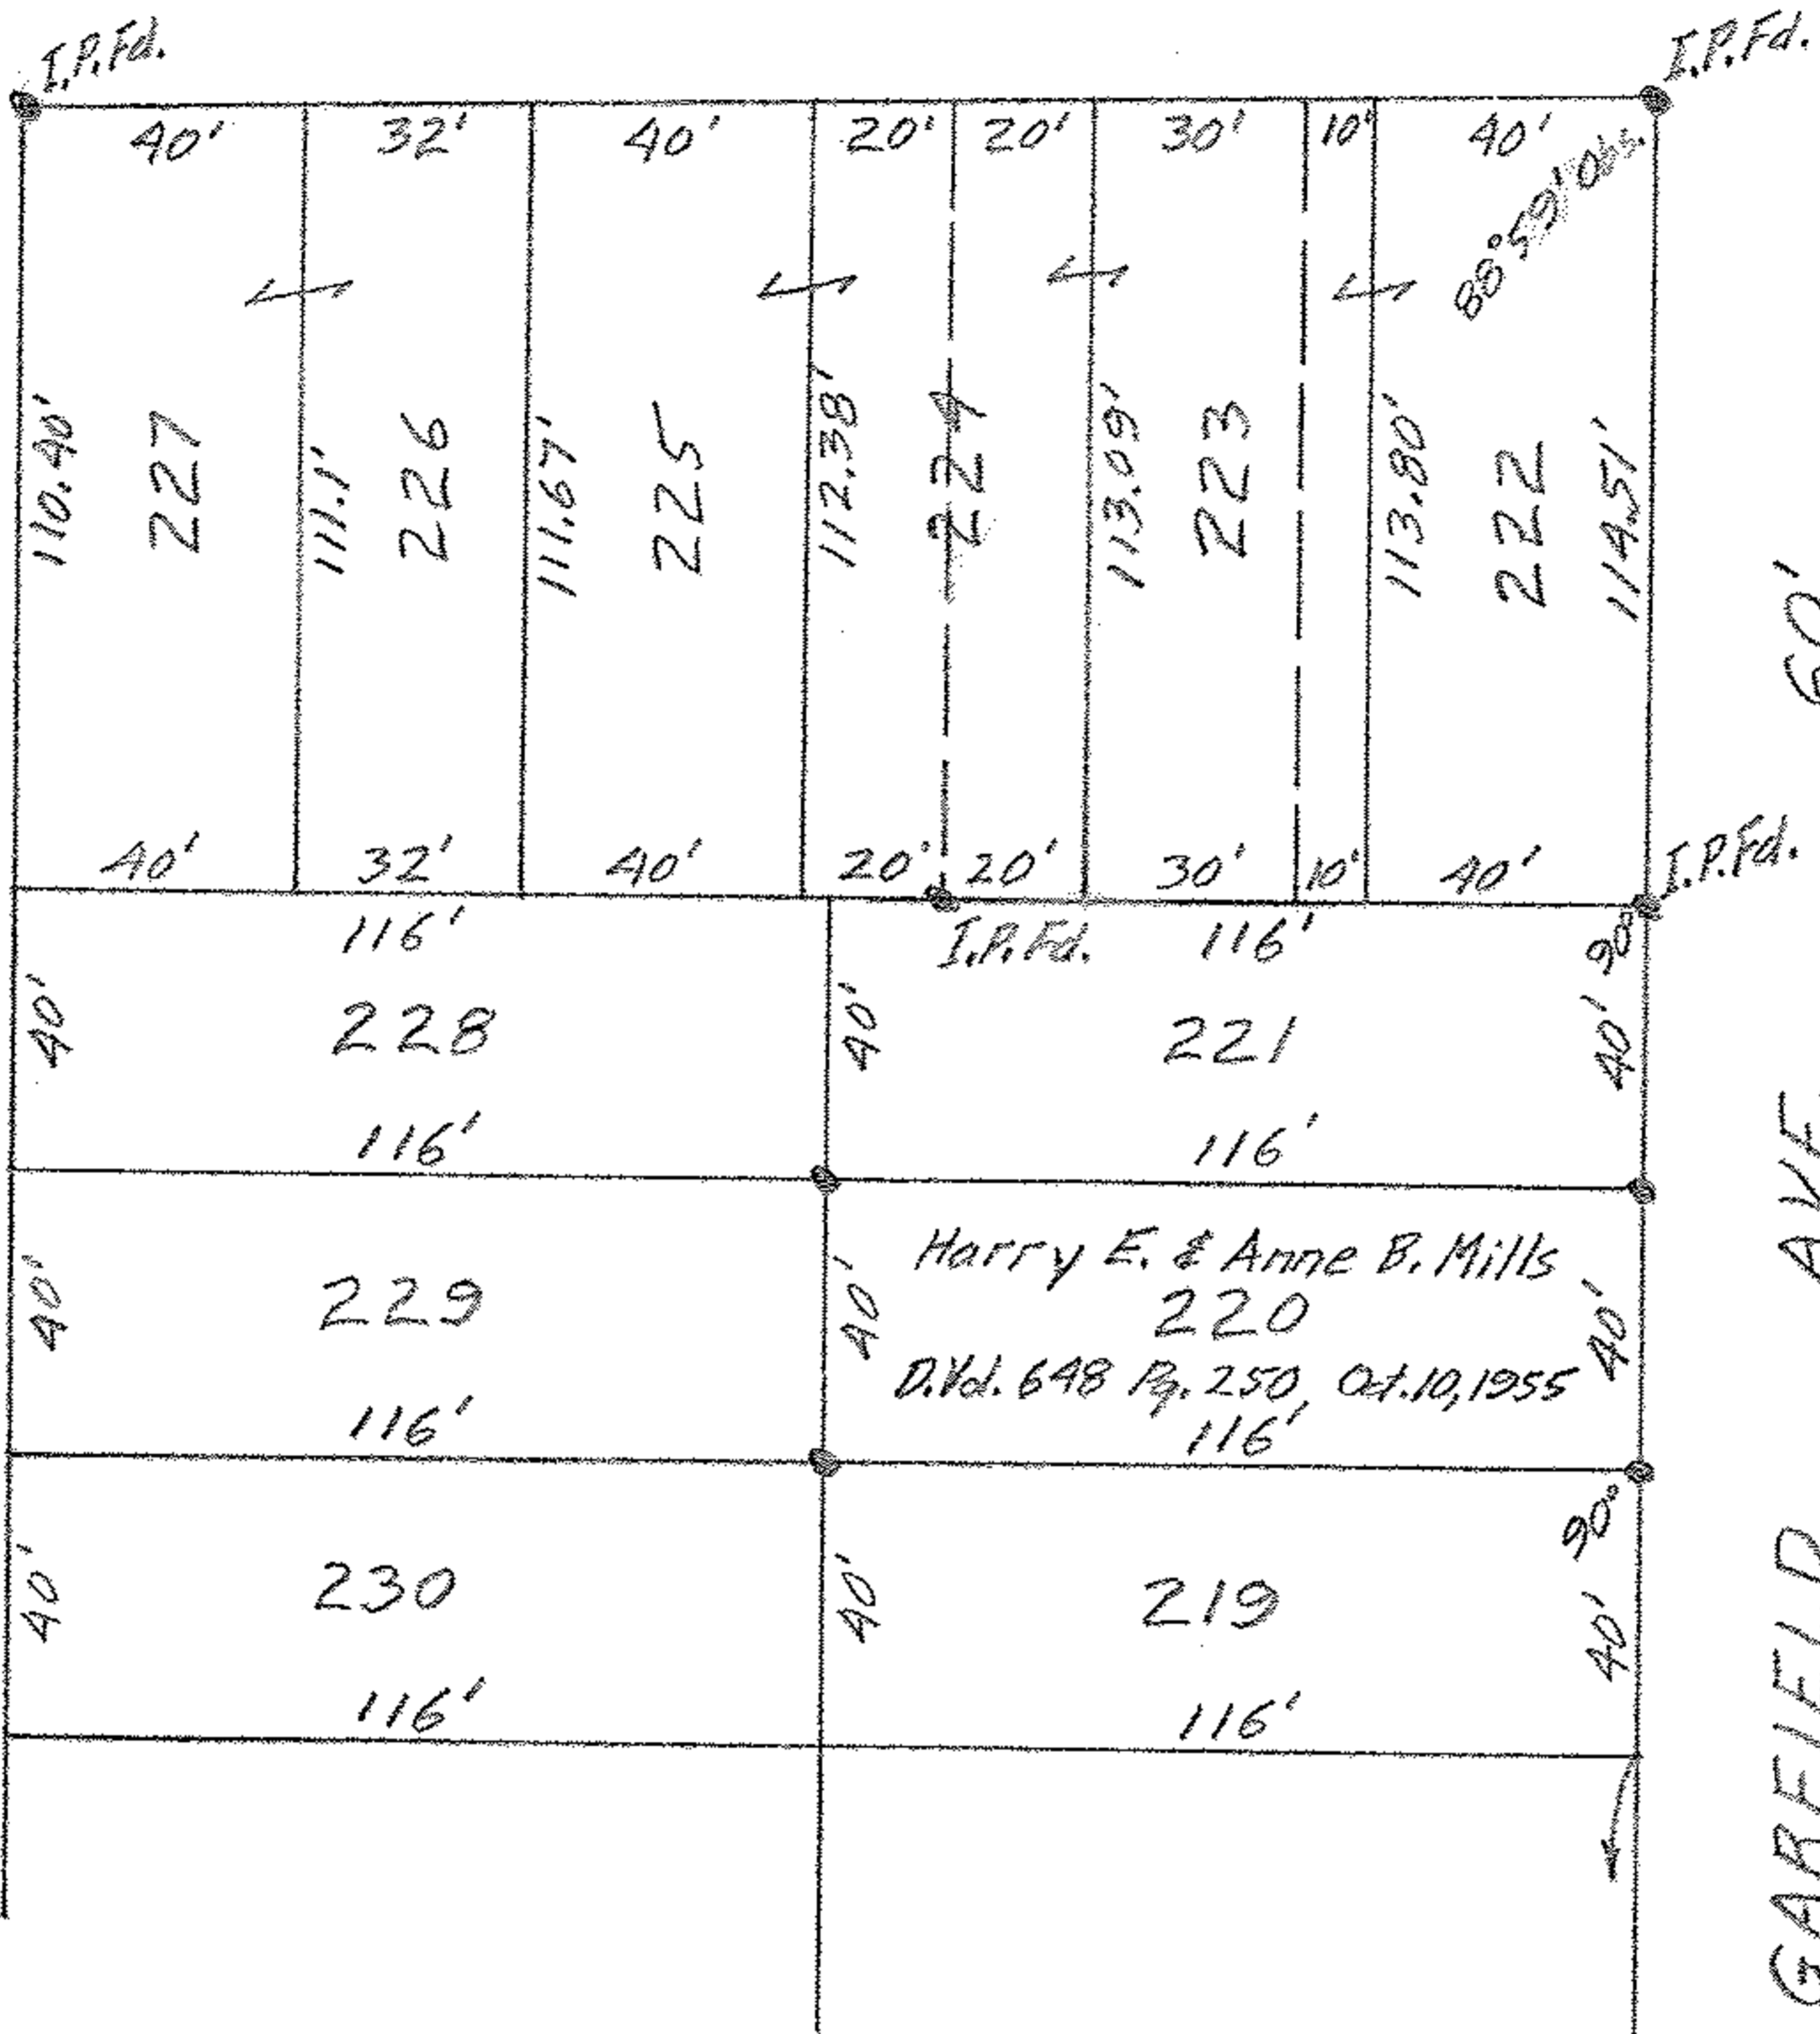 I.P.Fd.
I.P.Fd.
40' 32' 40' 20' 20' 30' 10' 40'
88°59' Obs.
110.40'
227
111.1'
226
111.67'
225
112.38'
224
113.09'
223
113.80'
222
114.51'
40' 32' 40' 20' 20' 30' 10' 40'
I.P.Fd.
I.P.Fd.
116' 116'
90°
40' 228 40' 221 40'
116' 116'
Harry E. & Anne B. Mills
40' 229 40' 220 40'
D.Vol. 648 Pg. 250, Oct.10,1955
116' 116'
90°
40' 230 40' 219 40'
116' 116'
GARFIELD AVE. 60'